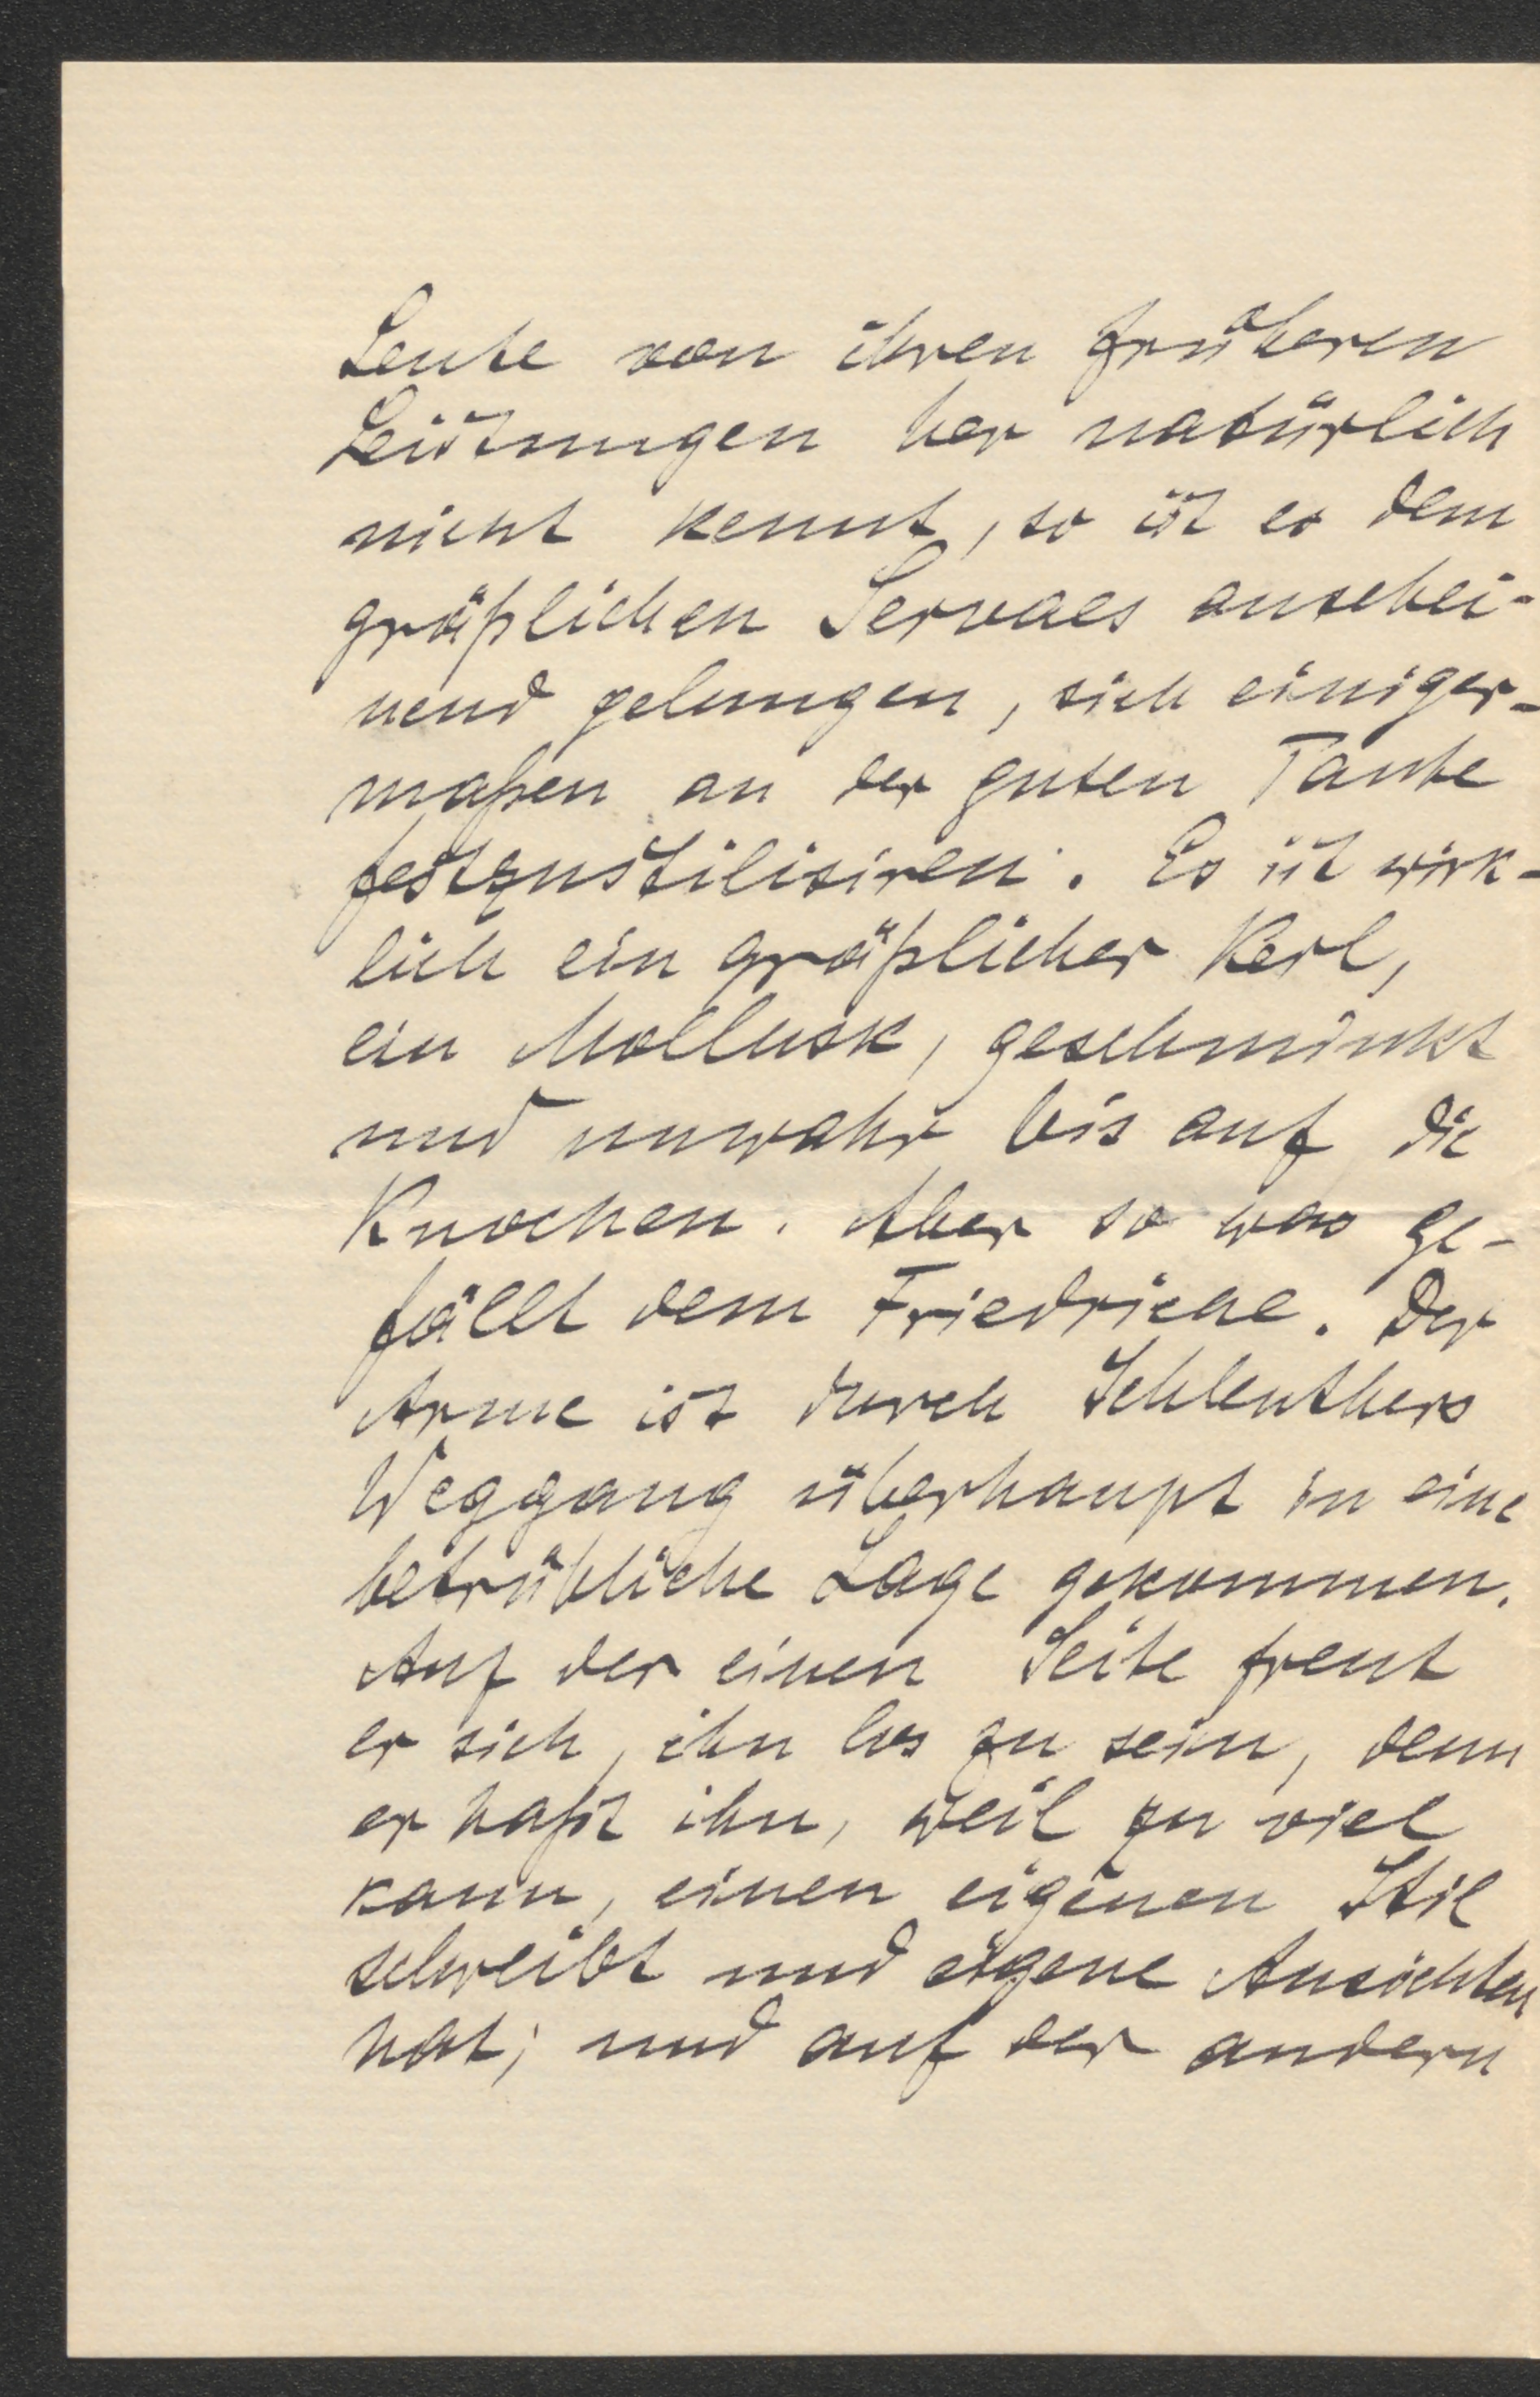 Leute von ihren früheren
Leistungen her natürlich
nicht kennt, so ist es dem
gräßlichen Servaes anschei-
nend gelungen, sich einiger-
maßen an der guten Tante
festzustilisiren. Es ist wirk-
lich ein gräßlicher Kerl,
ein Mollusk, geschminkt
und unwahr bis auf die
Knochen. Aber so was ge-
fällt dem Friedriche. Der
Arme ist durch Schlenthers
Weggang überhaupt in eine
betrübliche Lage gekommen.
Auf der einen Seite freut
er sich, ihn los zu sein, denn
er haßt ihn, weil zu viel
kann, einen eigenen Stil
schreibt und eigene Ansichten
hat; und auf der andern